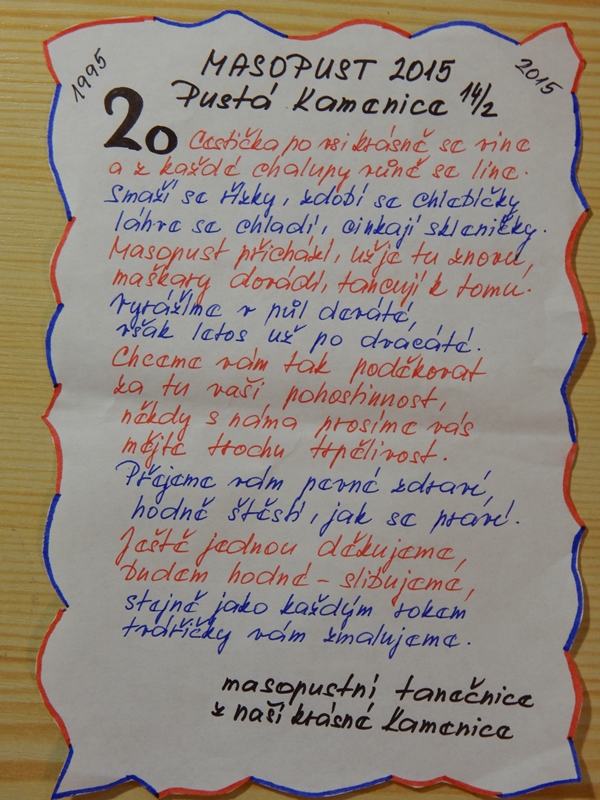 1995
2015
MASOPUST 2015
Pustá Kamenice 14/2
20 Cestička po vsi krásně se vine
a z každé chalupy vůně se line.
Smaží se řízky, zdobí se chlebíčky
láhve se chladí, cinkají skleničky.
Masopust přichází, už je tu znovu,
maškary dovádí, tancují k tomu.
Vyrážíme v půl deváté,
však letos už po dvacáté.
Chceme vám tak poděkovat
za tu vaši pohostinnost,
někdy s náma prosíme vás
mějte trochu trpělivost.
Přejeme vám pevné zdraví,
hodně štěstí, jak se praví.
Ještě jednou děkujeme,
budem hodné - slibujeme,
stejně jako každým rokem
tvářičky vám zmalujeme.
masopustní tanečnice
z naší krásné Kamenice